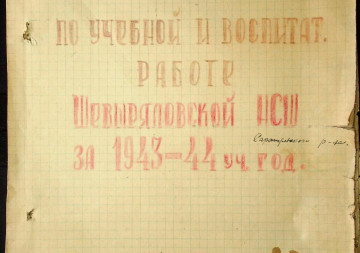 ПО УЧЕБНОЙ И ВОСПИТАТ.
РАБОТЕ
ШЕВЫРЯЛОВСКОЙ НСШ
Сарапульского р-на.
ЗА 1943-44 УЧ. ГОД.